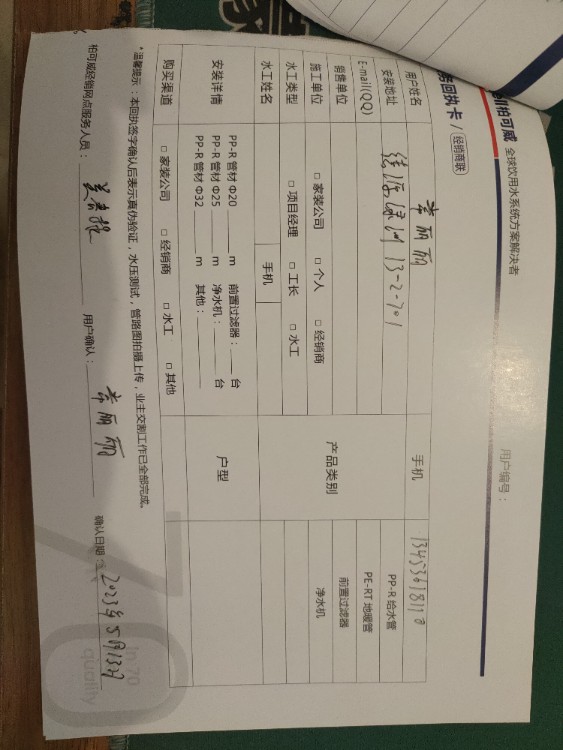 柏可威 全球饮用水系统方案解决者
务回执卡 / 经销商联
用户编号：
用户姓名 李丽丽 手机
安装地址 13-2-701 产品类别 PP-R 给水管
E-mail(QQ) PE-RT 地暖管
销售单位 前置过滤器
施工单位 □ 家装公司 □ 个人 □ 经销商 净水机
水工类型 □ 项目经理 □ 工长 □ 水工
水工姓名 手机
安装详情 PP-R 管材 Φ20 m 前置过滤器： 台 户型
PP-R 管材 Φ25 m 净水机： 台
PP-R 管材 Φ32 m 其他：
购买渠道 □ 家装公司 □ 经销商 □ 水工 □ 其他
*温馨提示：本回执签字确认后表示真伪验证，水压测试，管路图拍摄上传，业主交割工作已全部完成。
柏可威经销网点服务人员： 用户确认：李丽丽 确认日期：2023年5月13日
in 70
quality